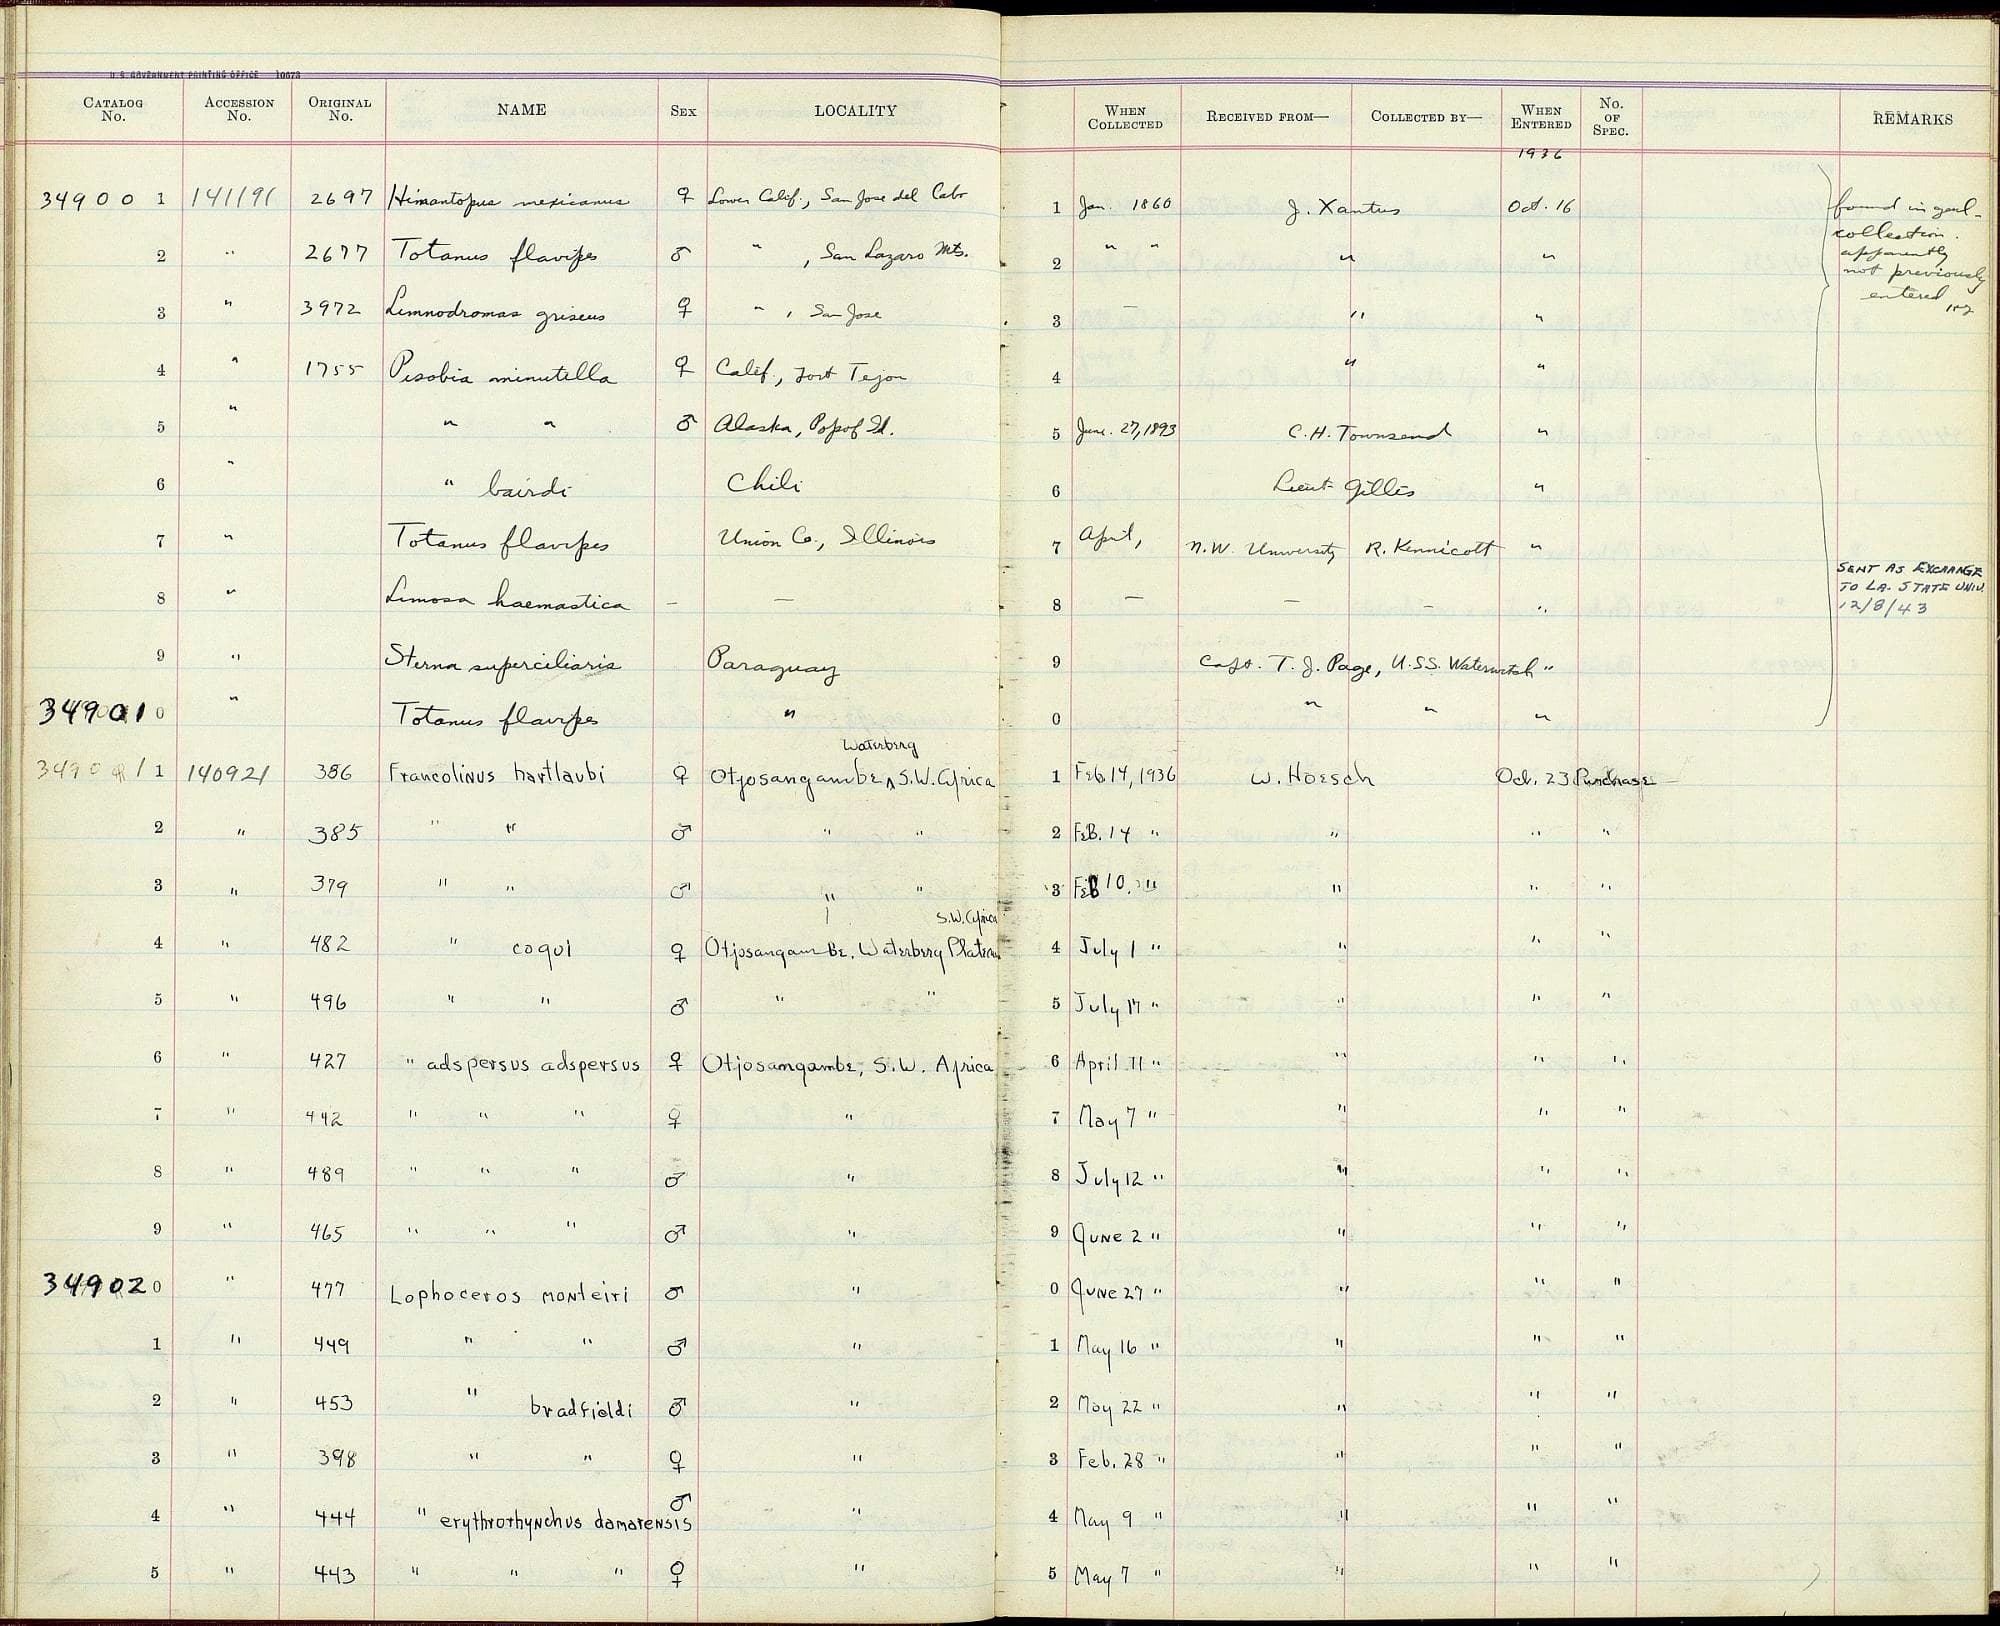 U.S. GOVERNMENT PRINTING OFFICE 10673
CATALOG No. ACCESSION No. ORIGINAL No. NAME SEX LOCALITY WHEN COLLECTED RECEIVED FROM— COLLECTED BY— WHEN ENTERED No. OF SPEC. REMARKS
1936
34900 1 141191 2697 Himantopus mexicanus ♀ Lower Calif., San Jose del Cabo 1 Jan. 1860 J. Xantus Oct. 16 found in genl-
collection.
apparently
not previously
entered
2 " 2677 Totanus flavipes ♂ " , San Lazaro Mts. 2 " " " "
3 " 3972 Limnodromas griseus ♀ " , San Jose 3 — " "
4 " 1755 Pisobia minutella ♀ Calif., Fort Tejon 4 " "
5 " " " ♂ Alaska, Popof Id. 5 June. 27, 1893 C.H. Townsend "
6 " " bairdi Chili 6 Lieut Gillis "
7 " Totanus flavipes Union Co., Illinois 7 April, N.W. University R. Kennicott "
8 " Limosa haemastica — — 8 — — — " SENT AS EXCHANGE
TO LA. STATE UNIV.
12/8/43
9 " Sterna superciliaris Paraguay 9 Capt. T. J. Page, U.S.S. Waterwitch "
34901 0 " Totanus flavipes " 0 " " "
Waterberg
34901 1 140921 386 Francolinus hartlaubi ♀ Otjosangambe ∧ S.W. Africa 1 Feb 14, 1936 W. Hoesch Oct. 23 Purchase
2 " 385 " " ♂ " " 2 Feb. 14 " " " "
3 " 379 " " ♂ " " 3 Feb 10. " " " "
S.W. Africa
4 " 482 " coqui ♀ Otjosangambe, Waterberg Plateau 4 July 1 " " " "
5 " 496 " " ♂ " " 5 July 17 " " " "
6 " 427 " adspersus adspersus ♀ Otjosangambe, S.W. Africa 6 April 11 " " " "
7 " 442 " " " ♀ " 7 May 7 " " " "
8 " 489 " " " ♂ " 8 July 12 " " " "
9 " 465 " " " ♂ " 9 June 2 " " " "
34902 0 " 477 Lophoceros monteiri ♂ " 0 June 27 " " " "
1 " 449 " " ♂ " 1 May 16 " " " "
2 " 453 " bradfieldi ♂ " 2 May 22 " " " "
3 " 398 " " ♀ " 3 Feb. 28 " " " "
4 " 444 " erythrorhynchus damarensis ♂ " 4 May 9 " " " "
5 " 443 " " " ♀ " 5 May 7 " " " "